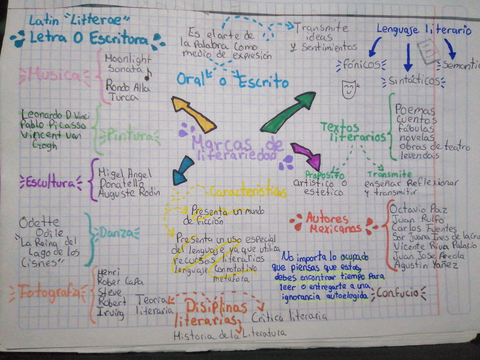 Latin "Litterae"
Letra O Escritora
Es el arte de
la palabra como
medio de expresión
Oral o Escrito
Transmite
ideas
y Sentimientos
Lenguaje literario
Fónicos
Sintácticos
Semantico
Musica
Moonlight
Sonata
Rondo Alla
Turca
Pintura
Leonardo D Vinci
Pablo Picasso
Vincent Van
Gogh
Escultura
Migel Angel
Donatello
Auguste Rodin
Danza
Odette
Odile
"La Reina del
Lago de los
Cisnes"
Fotografia
Henri
Robert Capa
Steve
Robert
Irving
Marcas de
literariedad
Textos
literarios
Poemas
Cuentos
fabulas
novelas
obras de teatro
leyendas
Proposito
artístico o
estetico
Transmite
enseñar Reflexionar
y transmitir
Caracteristicas
Presenta un mundo
de ficción
Presenta un uso especial
del lenguaje ya que utiliza
recursos literarios
lenguaje Connotativo
metafora
Autores
Mexicanos
Octavio Paz
Juan Rulfo
Carlos Fuentes
Sor Juana Ines de la Cruz
Vicente Riva Palacio
Juan Jose Arreola
Agustin Yañez
No importa lo ocupado
que piensas que estas,
debes encontrar tiempo para
leer o entregarte a una
ignorancia autoelegida
Confucio
Disiplinas
literarias
Teoria
literaria
Critica literaria
Historia de la Literatura